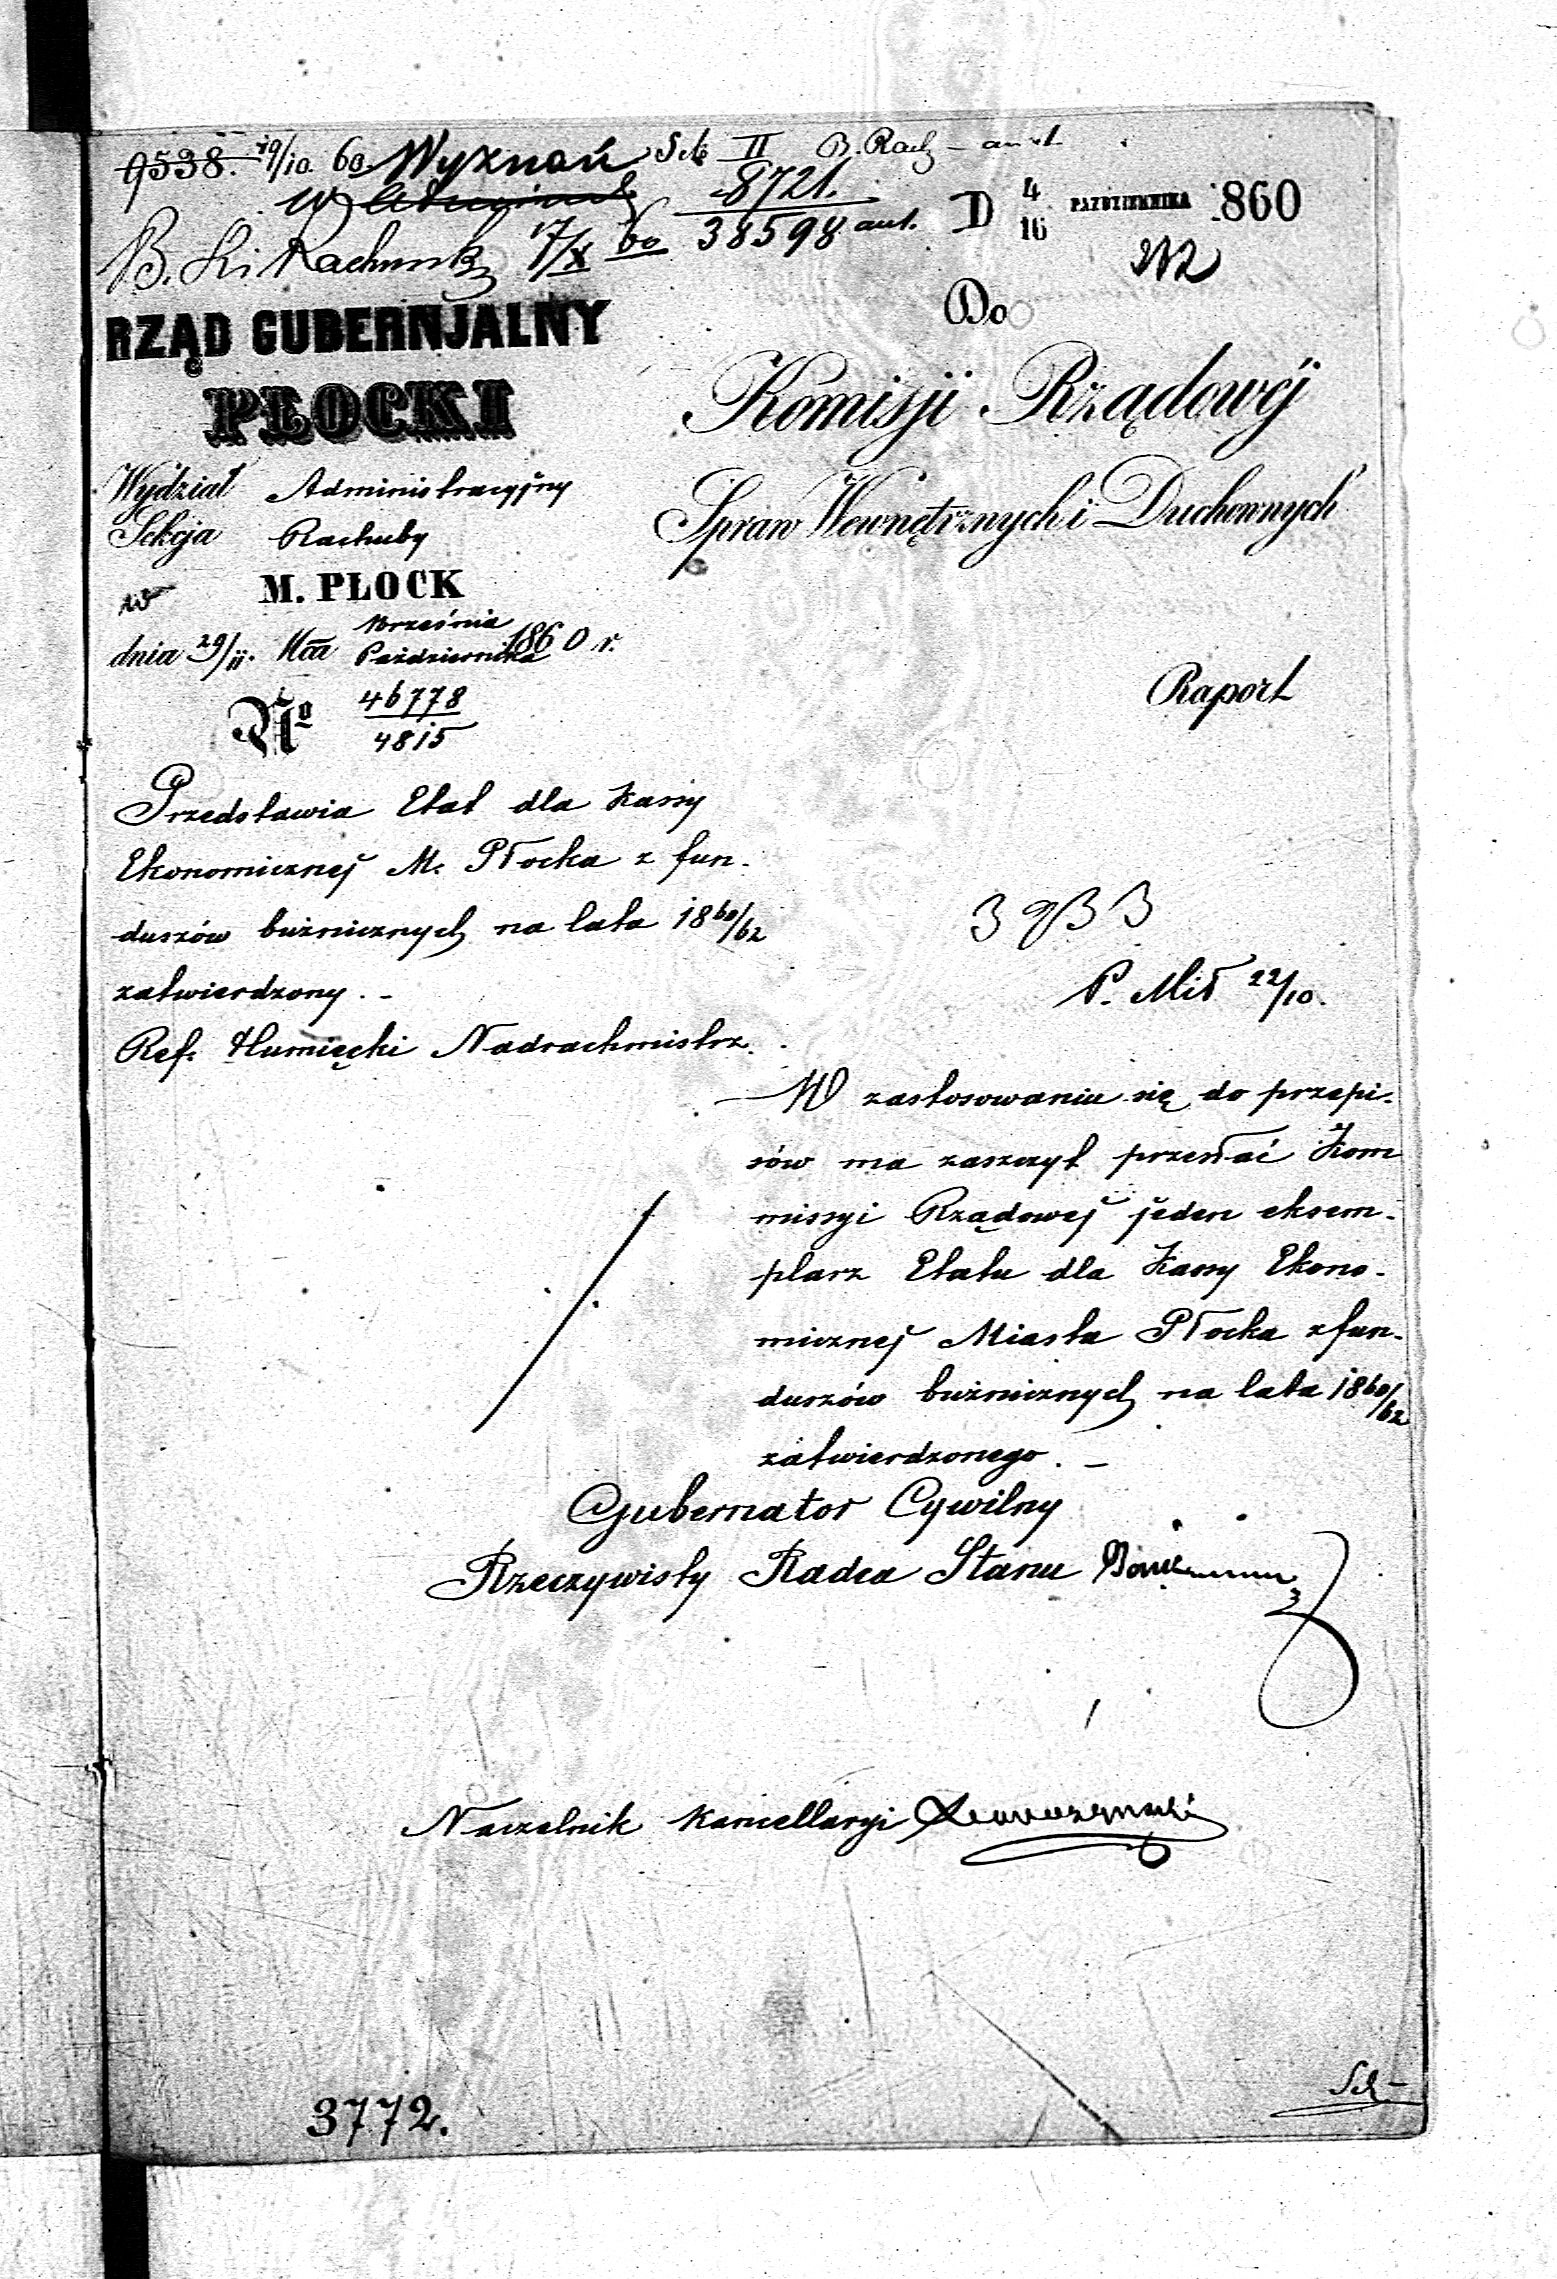 9538. 19/10 60. Wyznań Sek II B. Rach
8721.
38598 aut.
B. Ski Rachunk 17/X 60
D 4/16 PAŹDZIERNIKA 1860
RZĄD GUBERNJALNY
PŁOCKI
Wydział Administracyjny
Sekcja Rachuby
w M. PŁOCK
dnia 29/11. Mca Września Października 1860 r.
No 46778
4815
Do
Komisji Rządowéj
Spraw Wewnętrznych i Duchownych
Raport
Przedstawia Etat dla Kassy
Ekonomicznej M. Płocka z fun-
duszów bużnicznych na lata 1860/62
zatwierdzony. -
Ref. Tłumięcki Nadrachmistrz.
3933
P. Mił 22/10.
W zastosowaniu się do przepi-
sów ma zaszczyt przesłać Kom
missyi Rządowej jeden eksem-
plarz Etatu dla Kassy Ekono-
micznej Miasta Płocka z fun-
duszów bużnicznych na lata 1860/62
zatwierdzonego. -
Gubernator Cywilny
Rzeczywisty Radca Stanu
Naczelnik Kancellaryi
3772.